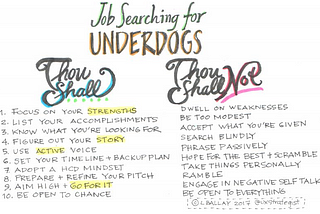 Job Searching for
UNDERDOGS
Thou
Shall
1. FOCUS ON YOUR STRENGTHS
2. LIST YOUR ACCOMPLISHMENTS
3. KNOW WHAT YOU'RE LOOKING FOR
4. FIGURE OUT YOUR STORY
5. USE ACTIVE VOICE
6. SET YOUR TIMELINE + BACKUP PLAN
7. ADOPT A HCD MINDSET
8. PREPARE + REFINE YOUR PITCH
9. AIM HIGH + GO FOR IT
10. BE OPEN TO CHANCE
Thou
Shall Not
DWELL ON WEAKNESSES
BE TOO MODEST
ACCEPT WHAT YOU'RE GIVEN
SEARCH BLINDLY
PHRASE PASSIVELY
HOPE FOR THE BEST + SCRAMBLE
TAKE THINGS PERSONALLY
RAMBLE
ENGAGE IN NEGATIVE SELF TALK
BE OPEN TO EVERYTHING
© LBALLAY 2017